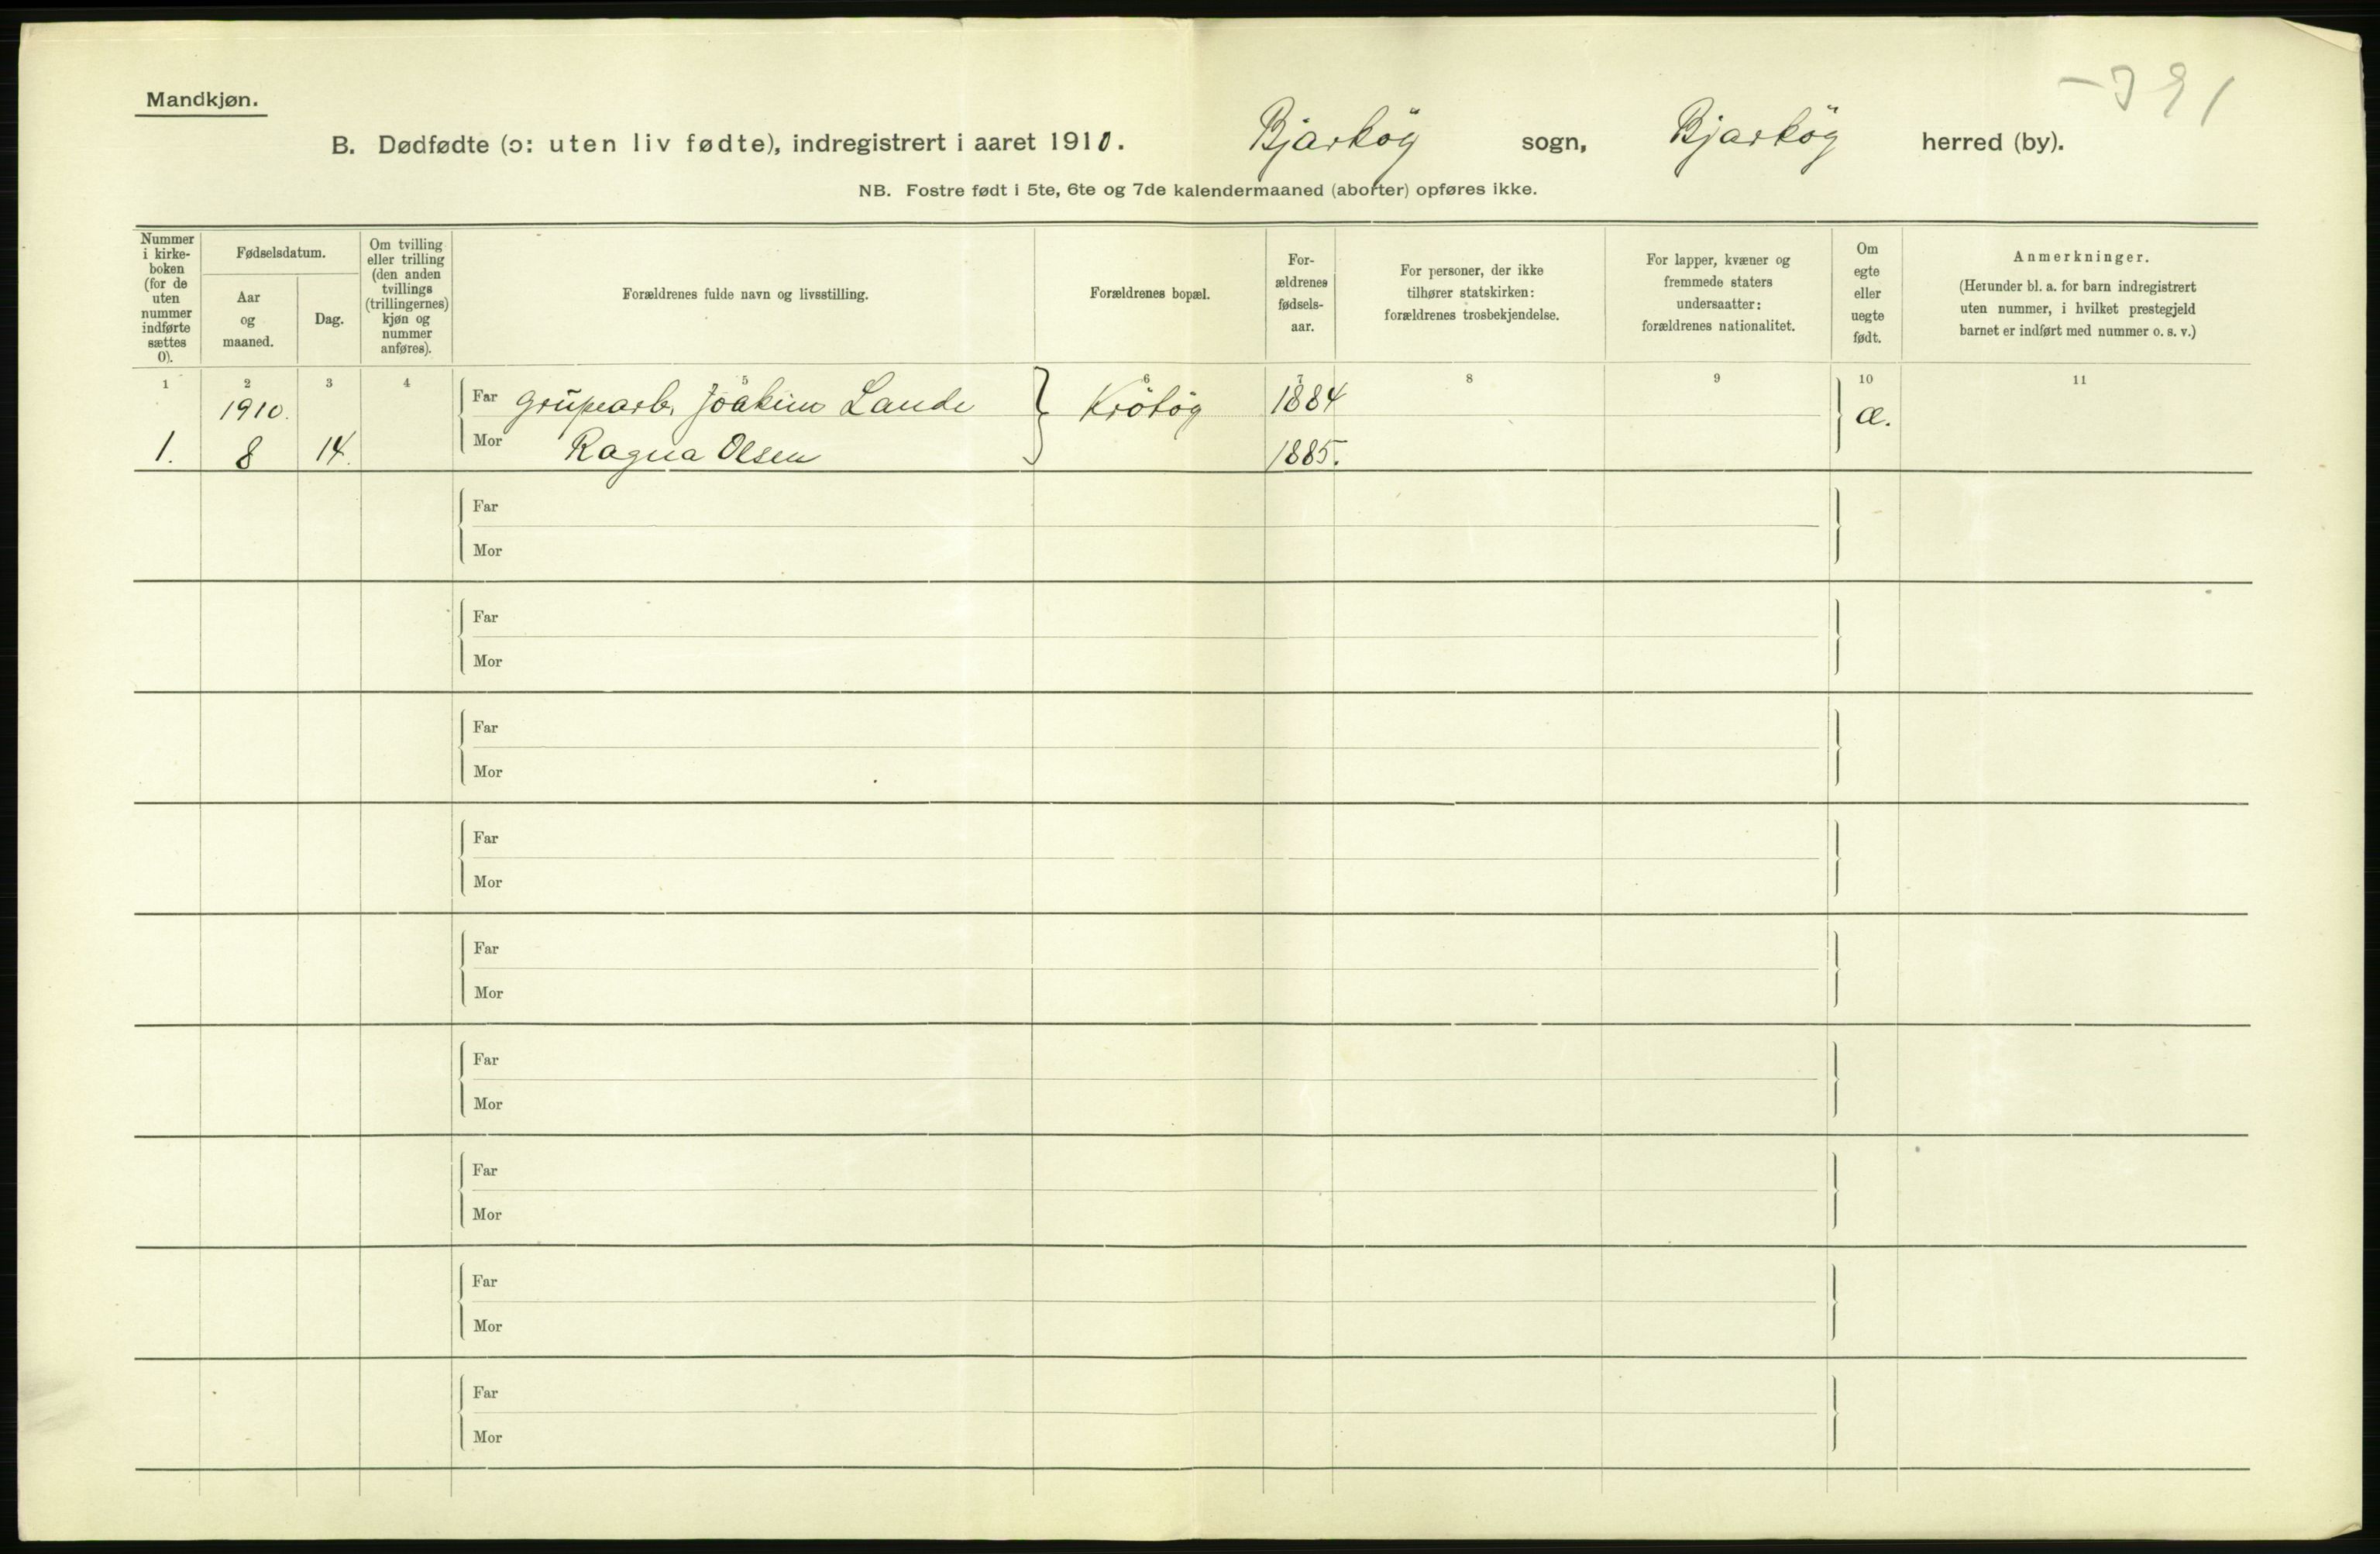 Mandkjøn.
B. Dødfødte (ɔ: uten liv fødte), indregistrert i aaret 1910. Bjarköy sogn, Bjarköy herred (by).
NB. Fostre født i 5te, 6te og 7de kalendermaaned (aborter) opføres ikke.
Nummer i kirke- boken (for de uten nummer indførte sættes 0).
Fødselsdatum.
Aar og maaned.
Dag.
Om tvilling eller trilling (den anden tvillings (trillingernes) kjøn og nummer anføres).
Forældrenes fulde navn og livsstilling.
Forældrenes bopæl.
For- ældrenes fødsels- aar.
For personer, der ikke tilhører statskirken: forældrenes trosbekjendelse.
For lapper, kvæner og fremmede staters undersaatter: forældrenes nationalitet.
Om egte eller uegte født.
Anmerkninger.
(Herunder bl. a. for barn indregistrert uten nummer, i hvilket prestegjeld barnet er indført med nummer o. s. v.)
1 2 3 4 5 6 7 8 9 10 11
1910. Far Joakim Lande Krötöy 1884 æ.
1. 8 14. Mor Ragna Olsen 1885.
Far
Mor
Far
Mor
Far
Mor
Far
Mor
Far
Mor
Far
Mor
Far
Mor
Far
Mor
Far
Mor